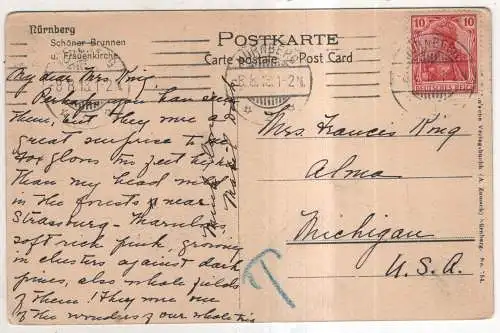 Nürnberg
Schöner Brunnen
u. Frauenkirche
POSTKARTE
Carte postale
Post Card
10
10
DEUTSCHES REICH
NÜRNBERG
8.6.13.1-2N.
My dear Mrs. King:
Perhaps you have seen
them, but they were a
great surprise to me.
Fox gloves six feet high
than my head
in the forests near
Strasburg -
soft rich pink, growing
in clusters against dark
pines, also whole fields
of them! They were one
of the wonders of our whole trip
Mrs. Francis King
Alma
Michigan
U.S.A.
T
Nürnberg. No.